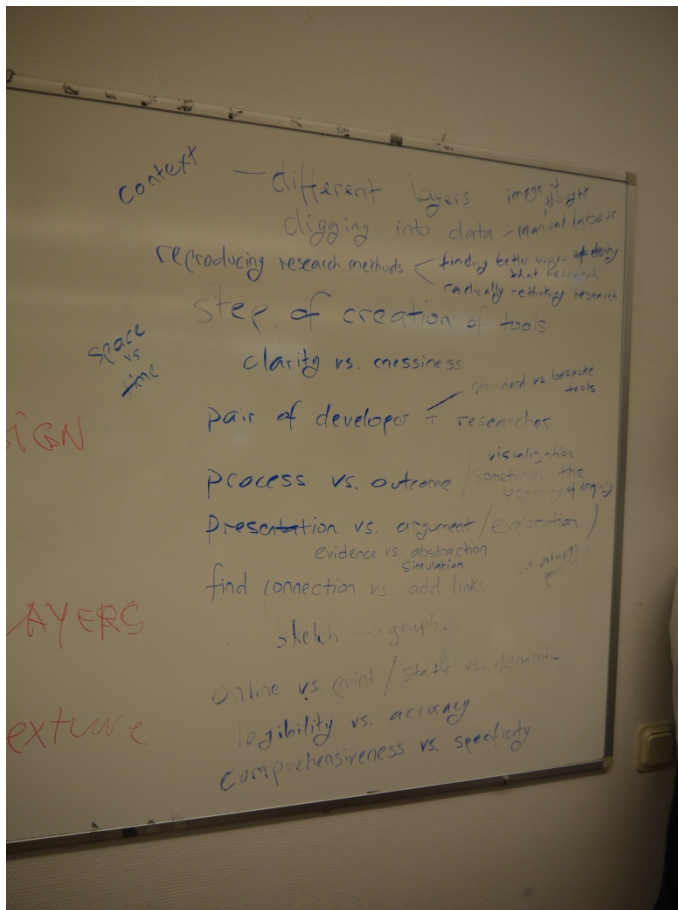 context
– different layers image of thought
digging into data – manual labour
reproducing research methods < finding better ways of doing
that research
radically rethinking research
step of creation of tools
space
vs
time
clarity vs. messiness
standard vs bespoke
tools
pair of developer + researcher
SIGN
visualization
process vs. outcome / sometimes the
beginning of inquiry
presentation vs. argument / exploration /
evidence vs. abstraction
simulation
find connection vs. add links
AYERS
sketch → graph.
online vs. print / static vs. dynamic
exture
logibility vs. accuracy
comprehensiveness vs. specificity